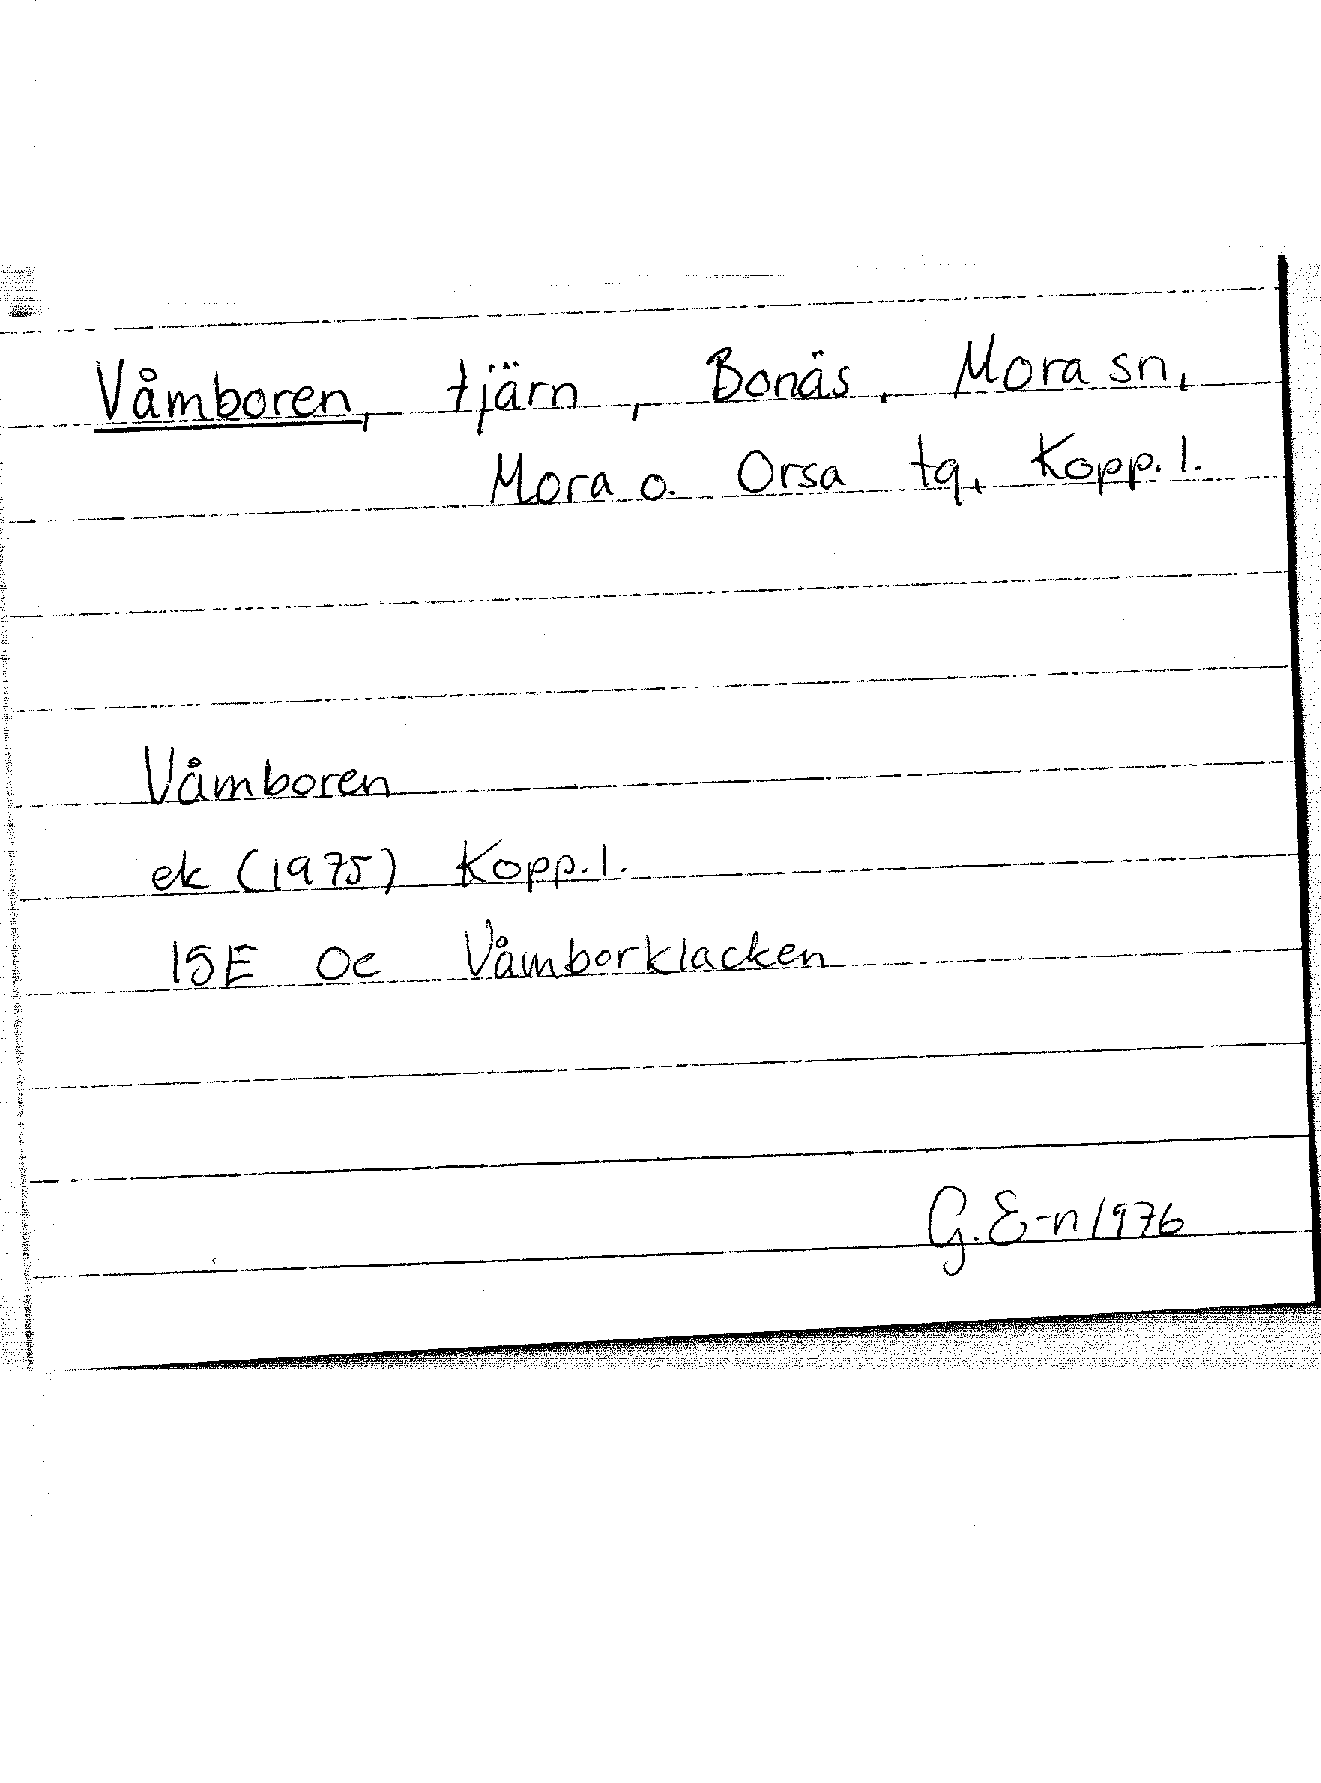 Våmboren, tjärn, Bonäs, Mora sn,
Mora o. Orsa tg, Kopp. l.
Våmboren
ek (1975) Kopp. l.
15E 0c Våmborklacken
G. E-n 1976